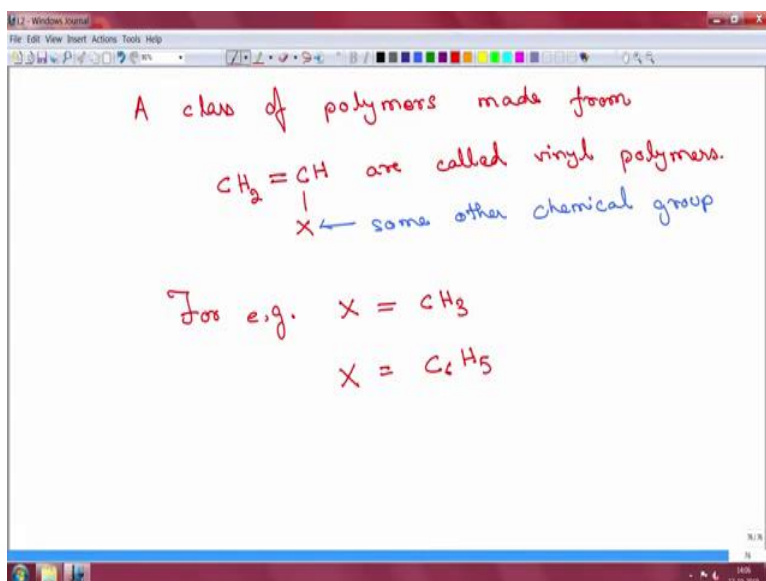 L2 - Windows Journal
File Edit View Insert Actions Tools Help
A class of polymers made from
CH₂ = CH are called vinyl polymers.
|
X ← some other chemical group
For e.g. X = CH₃
X = C₆H₅